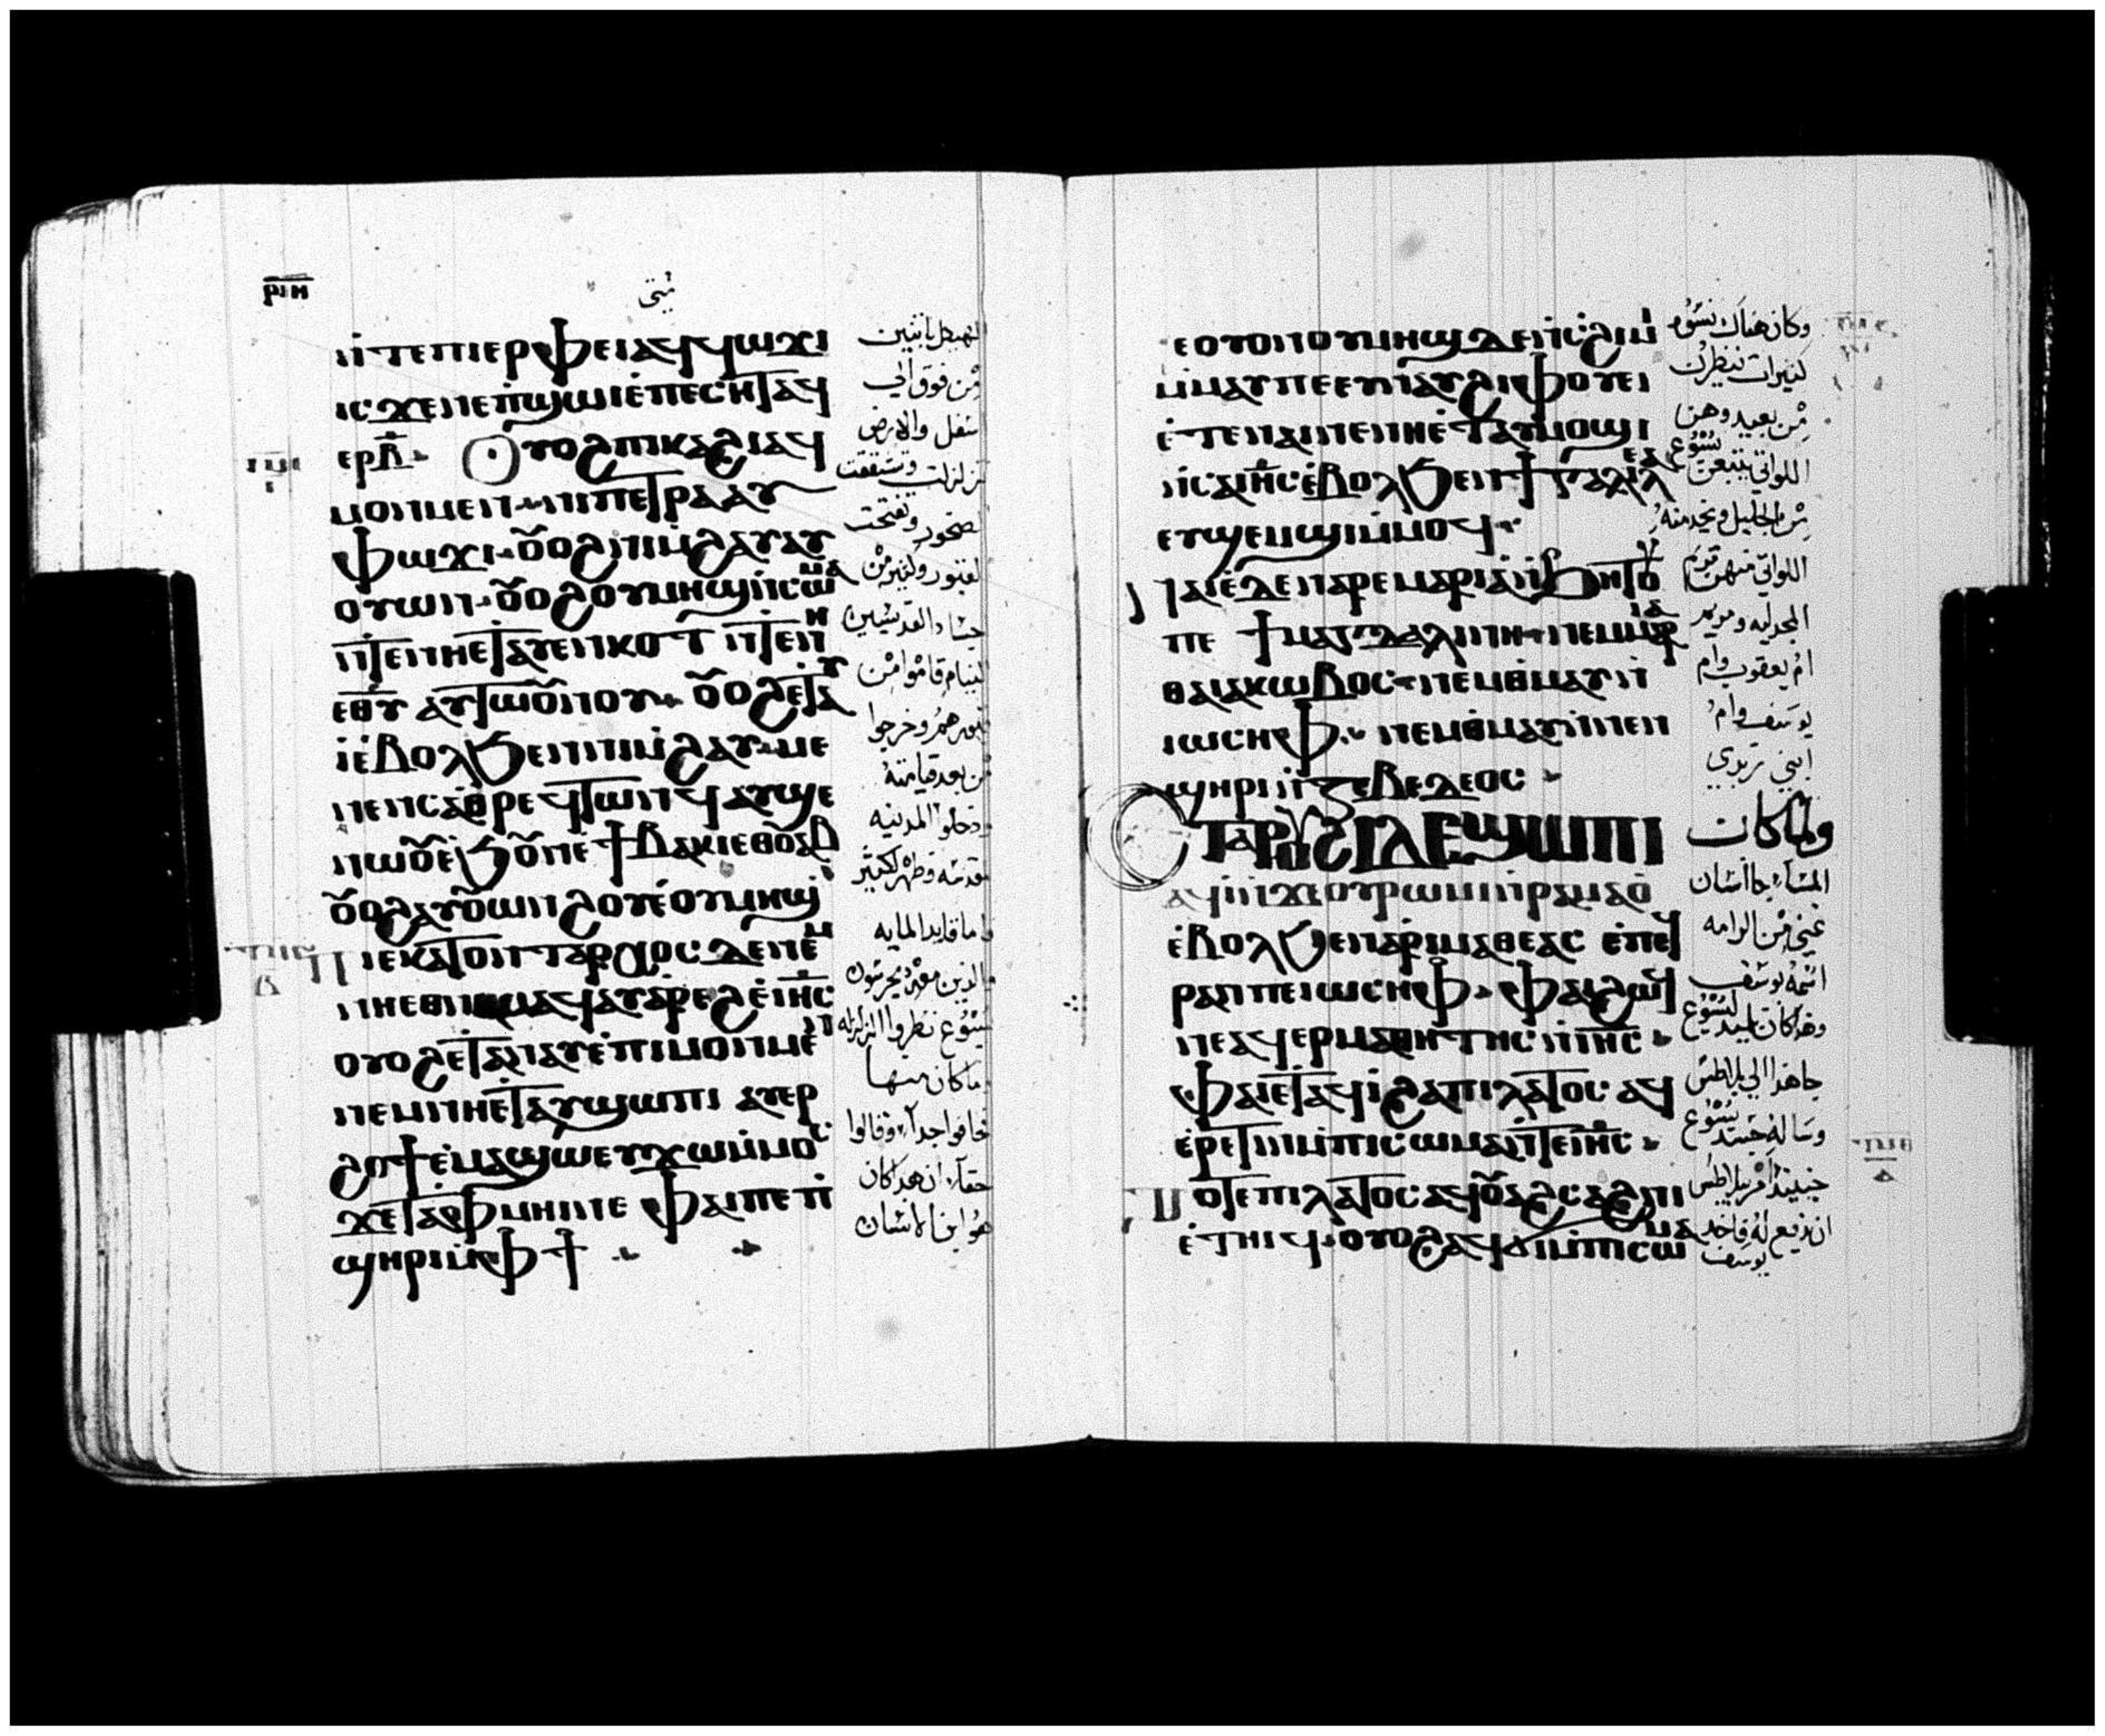 ⲣⲓⲏ
متى
ⲛ̀ⲧⲉⲡⲓⲉⲣⲫⲉⲓⲁϥϥⲱϫⲓ
ⲓⲥϫⲉⲛⲉⲡϣⲱⲓⲉⲡⲉⲥⲏⲧⲁϥ
ⲉⲣⲃ̅ Ⲟⲩⲟϩⲡⲓⲕⲁϩⲓⲁϥ
ⲙⲟⲛⲙⲉⲛ ⲛⲓⲡⲉⲧⲣⲁⲁⲩ
ⲫⲱϫⲓ ⲟⲩⲟϩⲛⲓⲙϩⲁⲩⲁⲩ
ⲟⲩⲱⲛ ⲟⲩⲟϩⲟⲩⲙⲏϣⲛ̀ⲥⲱⲙⲁ
ⲛ̀ⲧⲉⲛⲏⲉⲧⲁⲩⲉⲛⲕⲟⲧ ⲛ̀ⲧⲉⲛⲏ
ⲉⲑⲩ ⲁⲩⲧⲱⲟⲩⲛⲟⲩ ⲟⲩⲟϩⲉⲧⲁⲩ
ⲓ̀ⲉ̀ⲃⲟⲗϧⲉⲛⲛⲓⲙ̀ϩⲁⲩ ⲙⲉ
ⲛⲉⲛⲥⲁⲑⲣⲉϥⲧⲱⲛϥ ⲁⲩϣⲉ
ⲛⲱⲟⲩⲉ̀ϧⲟⲩⲛⲉ̀ϯⲃⲁⲕⲓⲉⲑⲟⲩⲁⲃ
ⲟⲩⲟϩⲁⲩⲟⲩⲱⲛϩⲟⲩⲉ̀ⲟⲩⲙⲏϣ
Ⲡⲓⲉⲕⲁⲧⲟⲛⲧⲁⲣⲭⲟⲥ ⲇⲉⲛⲉⲙ
ⲛⲏⲉⲑⲛⲉⲙⲁϥⲁⲩⲁⲣⲉϩⲉ̀ⲓⲏ̅ⲥ̅
ⲟⲩⲟϩⲉⲧⲁⲩⲛⲁⲩⲉ̀ⲡⲓⲙⲟⲛⲙⲉⲛ
ⲛⲉⲙⲛⲏⲉⲧⲁⲩϣⲱⲡⲓ ⲁⲩⲉⲣ
ϩⲟϯⲉ̀ⲙⲁϣⲱⲉⲩϫⲱⲙ̀ⲙⲟⲥ
ϫⲉⲧⲁⲫⲙⲏⲓⲛⲉ ⲫⲁⲓⲡⲉⲡ̀
ϣⲏⲣⲓⲙ̀ⲫϯ
الهيكل باثنين
من فوق الي
سفل والارض
تزلزلت وتشققت
لصخور وتفتحت
لقبور وكثير من
جساد القديسين
لنيام قاموا من
قبورهم وخرجوا
من بعد قيامته
ودخلوا المدينه
لمقدسه وظهر لكثير
واما قايد المايه
والذين معه يحرسون
يسوع نظروا الزلزله
وما كان منها
خافوا جدا وقالوا
حقا ان هذا كان
هو ابن الانسان
ⲉⲟⲩⲟⲛⲟⲩⲙⲏϣ ⲇⲉⲛ̀ⲥϩⲓⲙⲓ
ⲙ̀ⲙⲁⲩⲡⲉⲉⲩⲛⲁⲩϩⲓⲫⲟⲩⲉⲓ
ⲉ̀ⲧⲉⲛⲁⲓⲛⲉⲛⲏⲉ̀ⲧⲁⲩⲙⲟϣⲓ
ⲛ̀ⲥⲁⲓⲏ̅ⲥ̅ⲉ̀ⲃⲟⲗϧⲉⲛϯⲅⲁⲗⲓⲗⲉⲁ
ⲉⲩϣⲉⲙϣⲓⲙ̀ⲙⲟϥ
Ⲛⲁⲓⲉ̀ⲇⲉⲛⲁⲣⲉⲙⲁⲣⲓⲁⲛ̀ϧⲏⲧⲟⲩ
ⲡⲉ ϯⲙⲁⲅⲇⲁⲗⲓⲛⲏ ⲛⲉⲙⲙⲁⲣⲓⲁ
ⲑⲁⲓⲁⲕⲱⲃⲟⲥ ⲛⲉⲙⲑⲙⲁⲩⲛ̀
ⲓⲱⲥⲏⲫ ⲛⲉⲙⲑⲙⲁⲩⲛ̀ⲛⲉⲛ
ϣⲏⲣⲓⲛ̀ⲍⲉⲃⲉⲇⲉⲟⲥ
Ⲉⲧⲁⲣⲟⲩϩⲓⲇⲉϣⲱⲡⲓ
ⲁϥⲓ̀ⲛ̀ϫⲉⲟⲩⲣⲱⲙⲓⲛ̀ⲣⲁⲙⲁⲟ̀
ⲉ̀ⲃⲟⲗϧⲉⲛⲁⲣⲓⲙⲁⲑⲉⲁⲥ ⲉ̀ⲡⲉϥ
ⲣⲁⲛⲡⲉⲓⲱⲥⲏⲫ ⲫⲁⲓϩⲱϥ
ⲛⲉⲁϥⲉⲣⲙⲁⲑⲏⲧⲏⲥⲛ̀ⲓⲏ̅ⲥ̅
ⲫⲁⲓⲉⲧⲁϥⲓ̀ϩⲁⲡⲓⲗⲁⲧⲟⲥ ⲁϥ
ⲉ̀ⲣⲉⲧⲓⲛⲙ̀ⲡⲓⲥⲱⲙⲁⲛ̀ⲧⲉⲓⲏ̅ⲥ̅
Ⲧⲟⲧⲉⲡⲓⲗⲁⲧⲟⲥⲁϥⲟⲩⲁϩⲥⲁϩⲛⲓ
ⲉ̀ⲧⲏⲓϥ ⲟⲩⲟϩⲁϥϭⲓⲙ̀ⲡⲓⲥⲱⲙⲁ
وكان هناك نسوه
كثيرات تنظرن
من بعيد وهن
اللواتي يتبعن يسوع
من الجليل ويخدمنه
اللواتي منهن مريم
المجدليه ومريم
ام يعقوب وام
يوسف وام
ابني زبدي
ولما كان
المساء جا انسان
غني من الرامه
اسمه يوسف
وهذا كان تلميذ ليسوع
جا هذا الي بيلاطس
وساله جسد يسوع
حينيذ امر بيلاطس
ان يدفع له فاخذ
يوسف